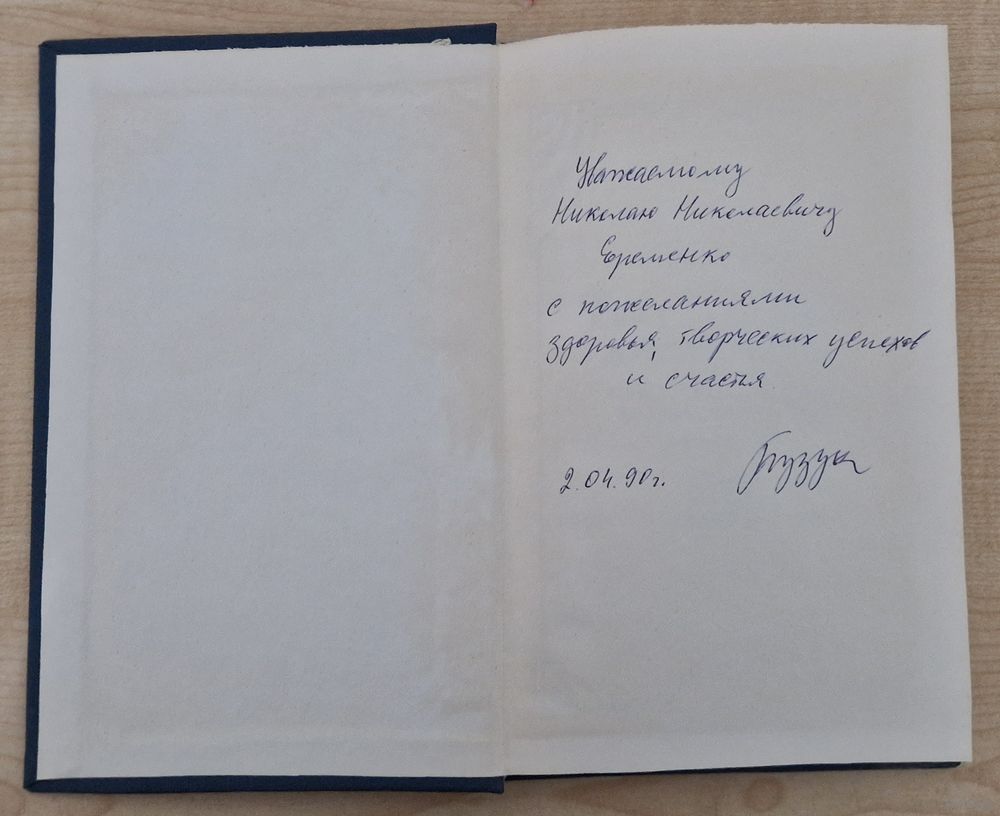 Уважаемому
Николаю Николаевичу
Еременко
с пожеланиями
здоровья, творческих успехов
и счастья
2.04.90г.